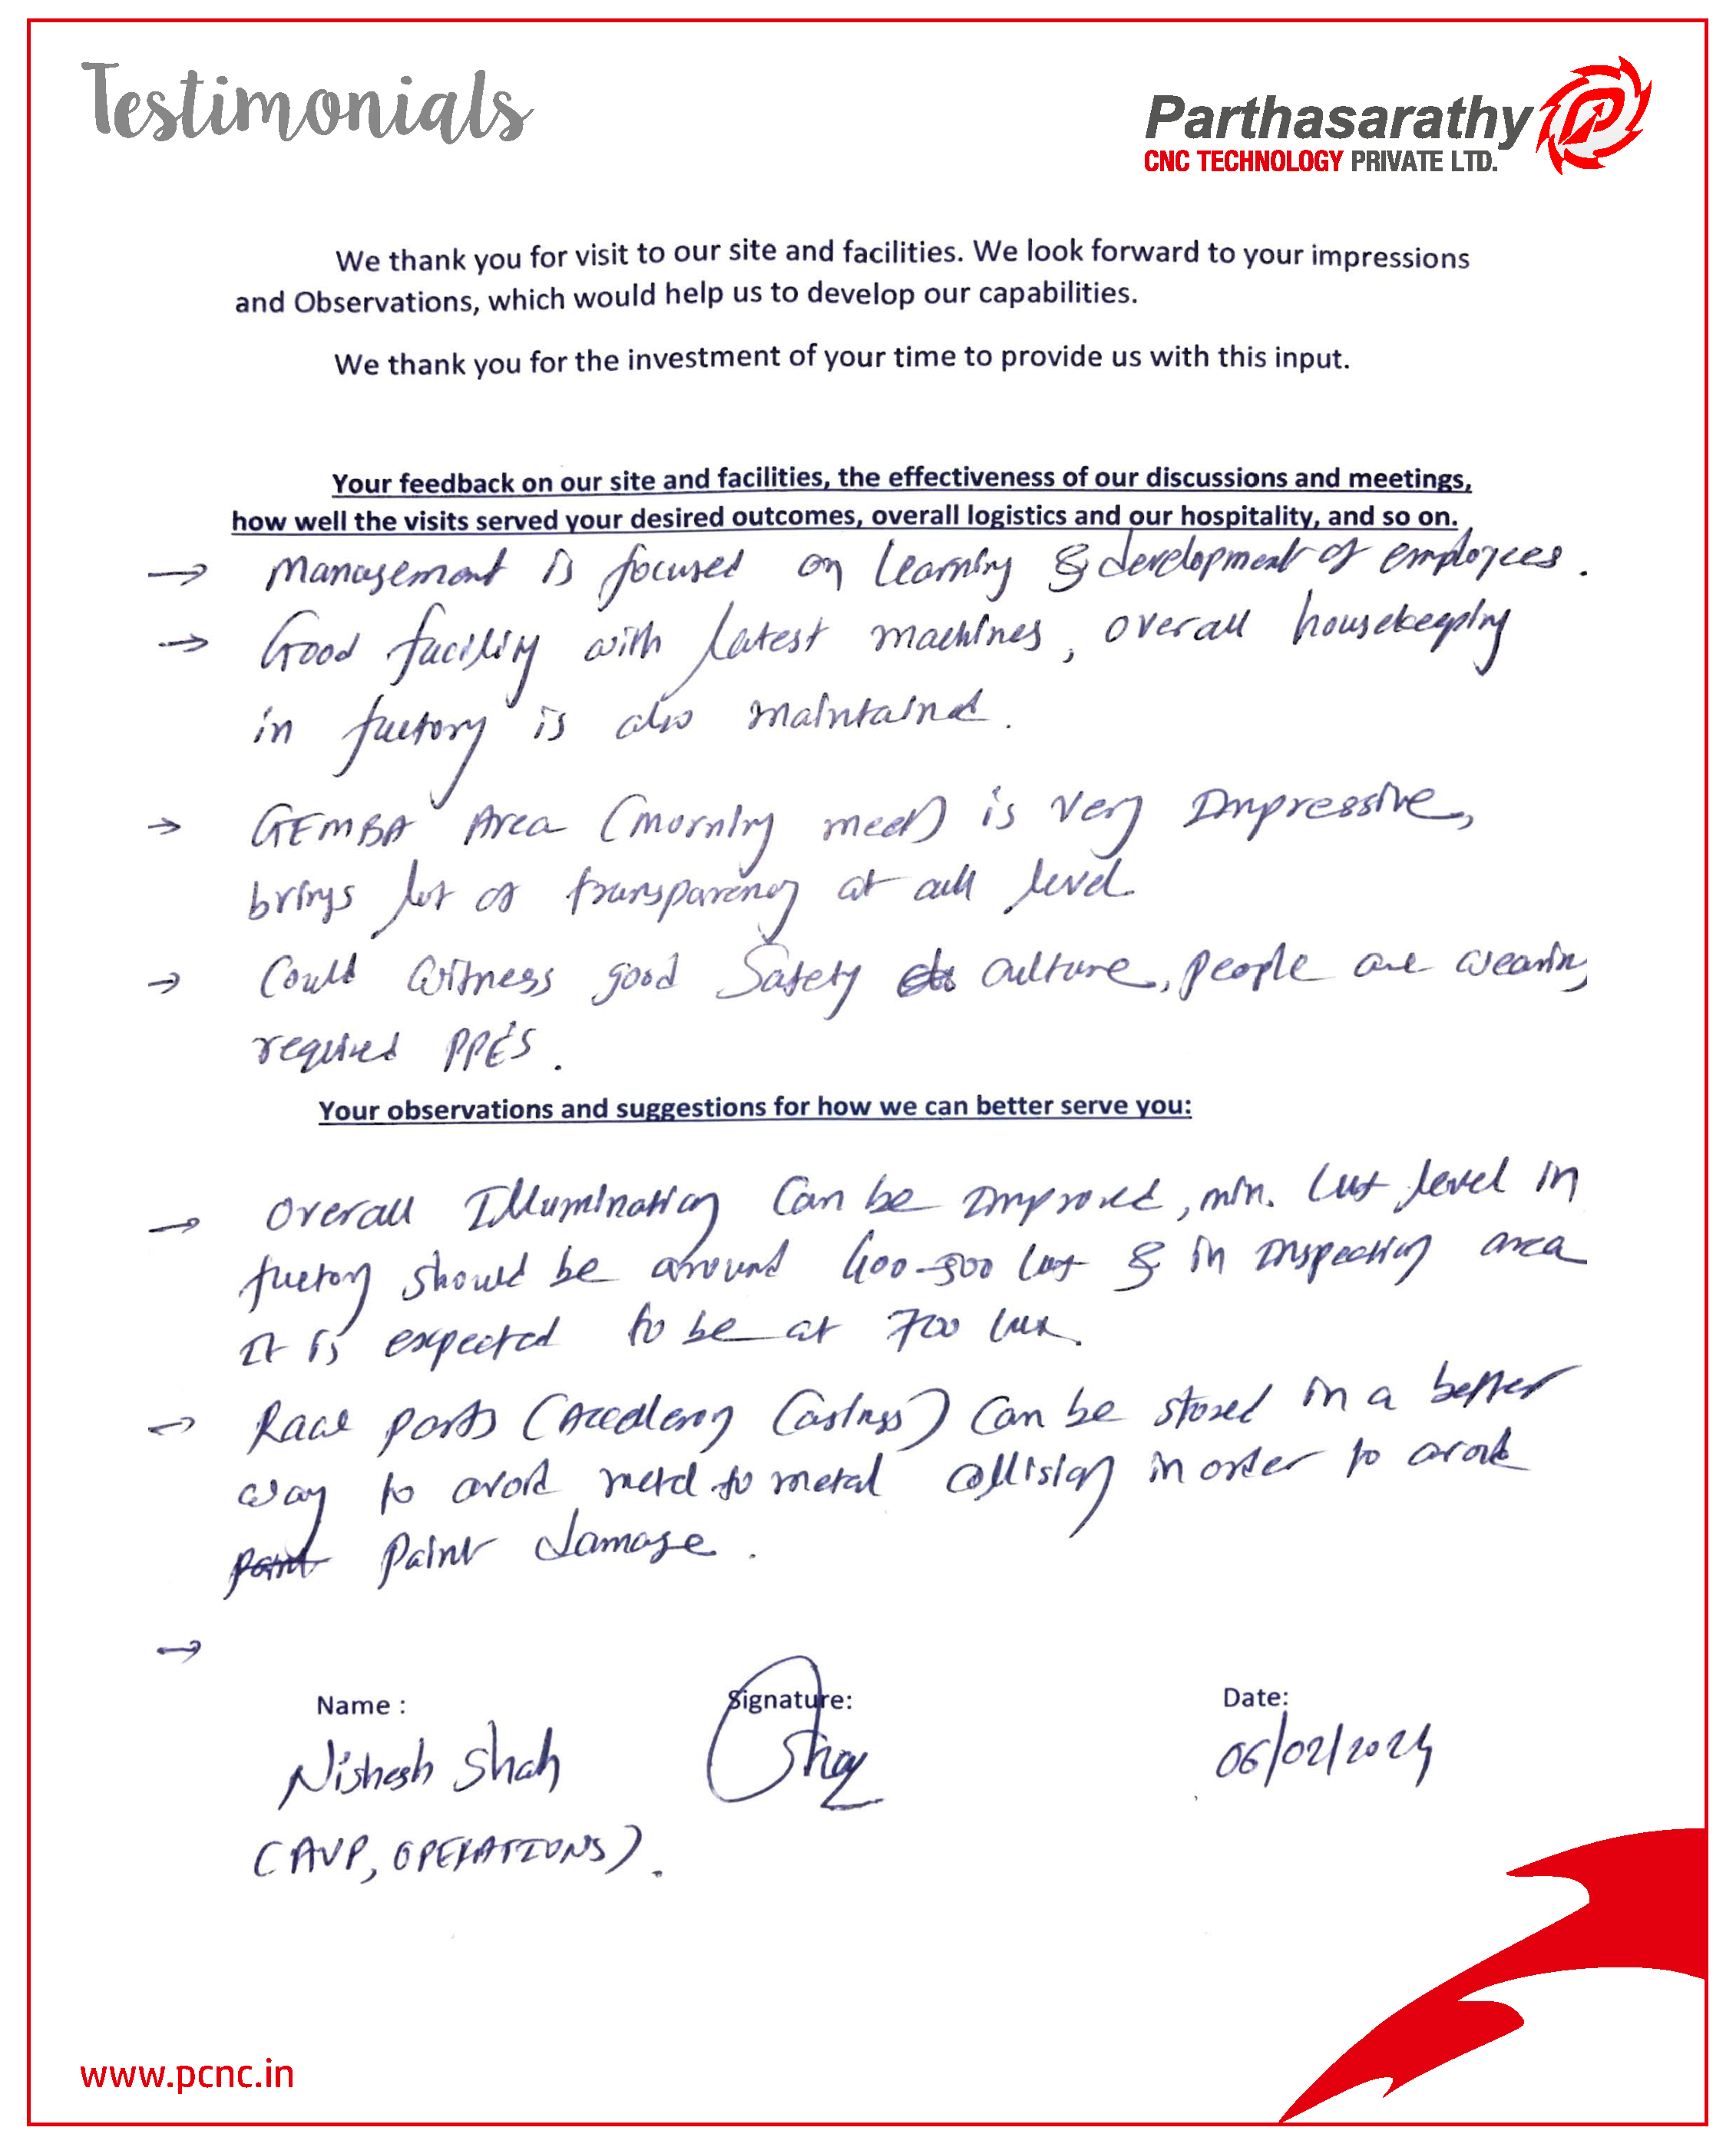 Testimonials
Parthasarathy
CNC TECHNOLOGY PRIVATE LTD.
We thank you for visit to our site and facilities. We look forward to your impressions
and Observations, which would help us to develop our capabilities.
We thank you for the investment of your time to provide us with this input.
Your feedback on our site and facilities, the effectiveness of our discussions and meetings,
how well the visits served your desired outcomes, overall logistics and our hospitality, and so on.
→ Management is focused on learning & development of employees.
→ Good facility with latest machines, overall housekeeping
in factory is also maintained.
→ GEMBA Area (morning meet) is very Impressive,
brings lot of transparency at all level
→ Could witness good Safety culture, people are wearing
required PPE'S.
Your observations and suggestions for how we can better serve you:
→ Overall Illumination can be Improved, min. lux level in
factory should be around 400-500 lux & in Inspection area
It is expected to be at 700 lux.
→ parts ( Castings) can be stored in a better
way to avoid metal to metal collision in order to avoid
Paint damage.
→
Name :
Signature:
Date:
Nishesh Shah
06/02/2024
(AVP, OPERATIONS).
www.pcnc.in